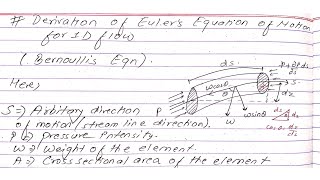 # Derivation of Euler's Equation of Motion
for 1D flow
(Bernoullis Eqn).
Here,
S => Arbitary direction
of motion/stream line direction).
P => Pressure Intensity.
W => Weight of the element.
A => Cross sectional area of the element
ds
P
wcosθ
w
θ
ds
dz